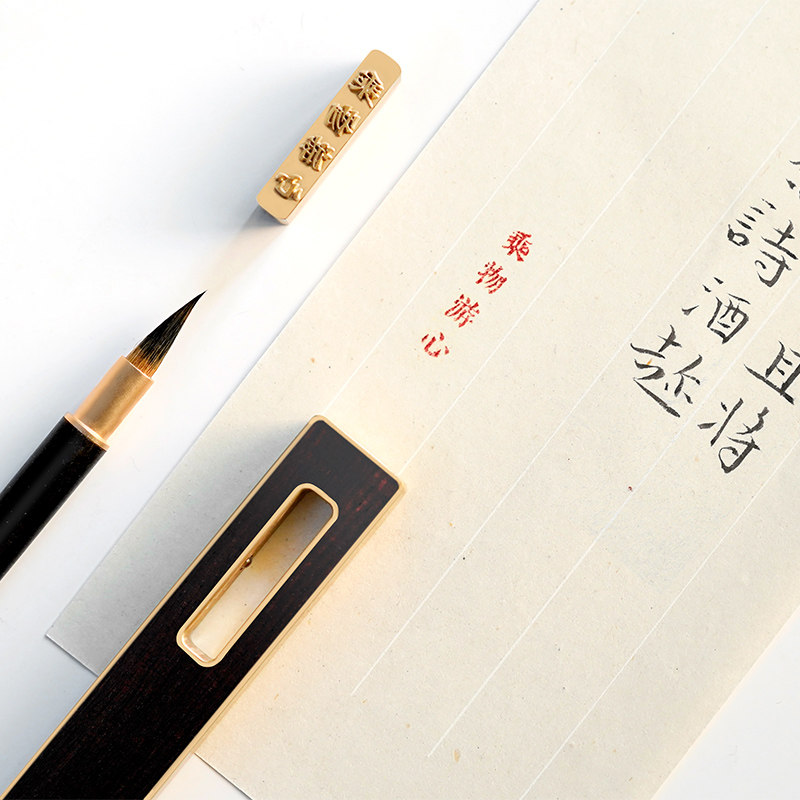 乘物游心
且将
詩酒趁
乘物游心